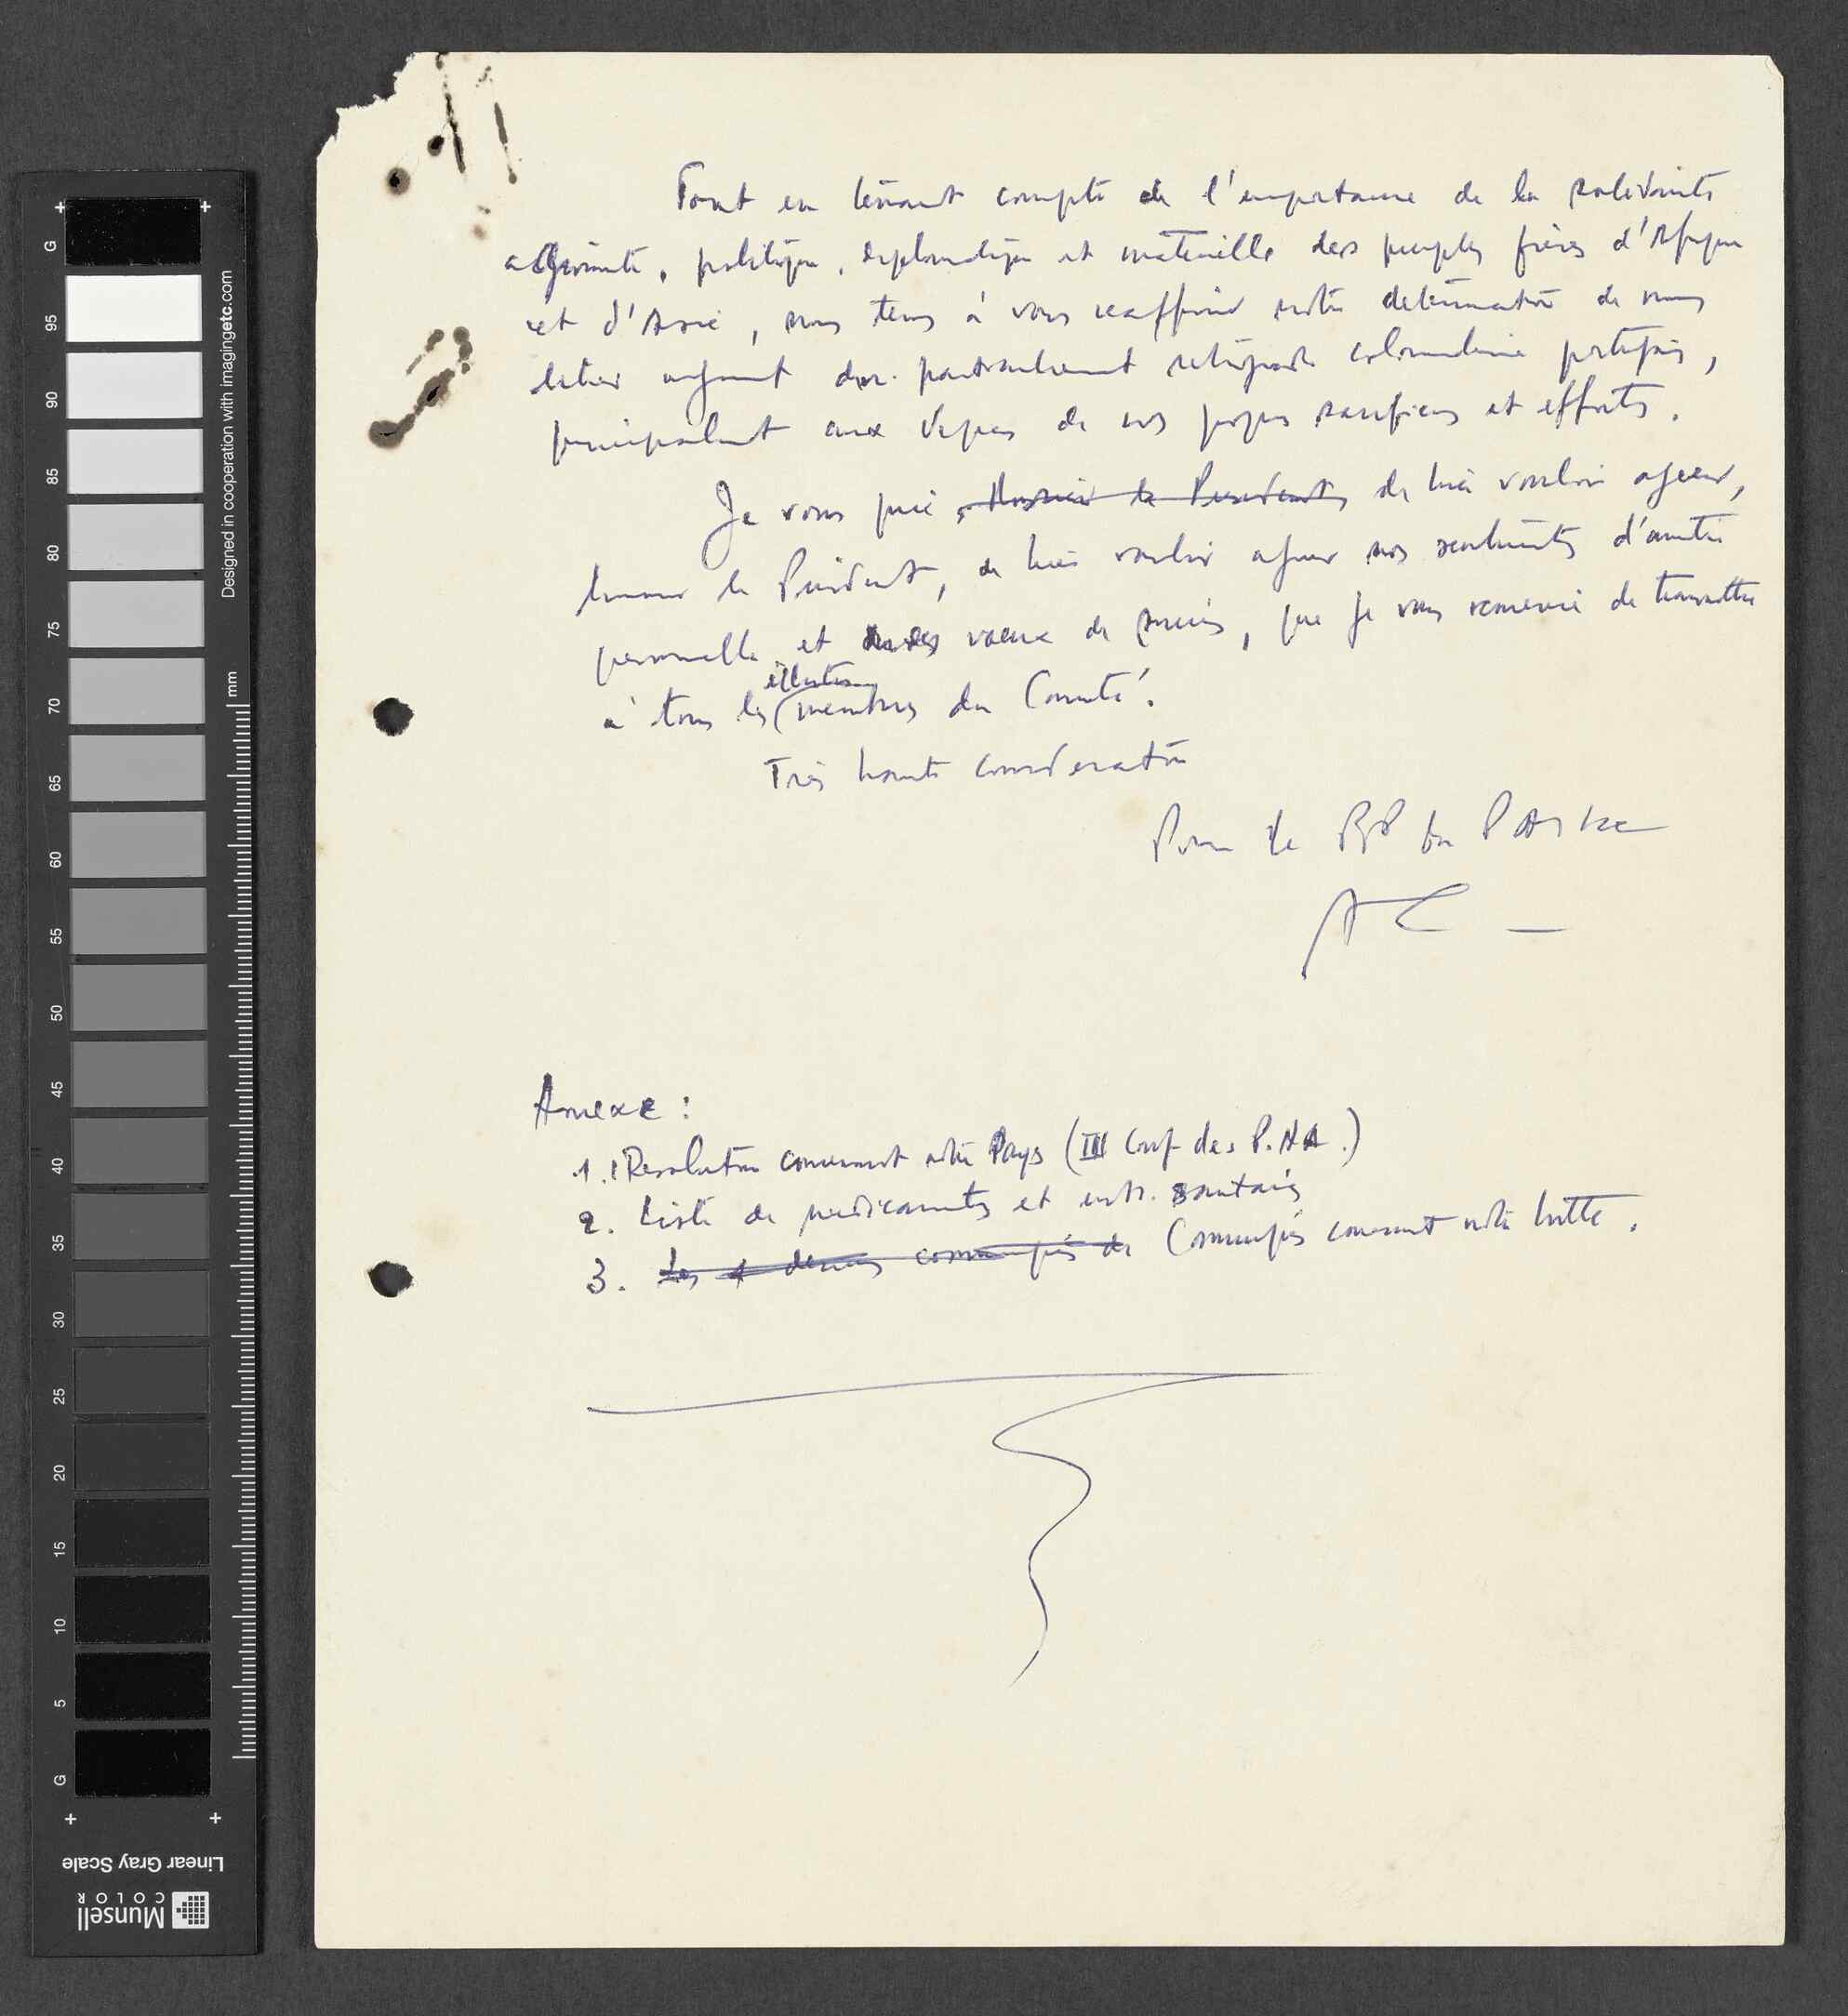 Tout en tenant compte de l'importance de la solidarité
agissante, politique, diplomatique et matérielle des peuples frères d'Afrique
et d'Asie, nous tenons à vous réaffirmer notre détermination de nous
libérer du colonialisme portugais,
principalement aux dépens de nos propres sacrifices et efforts.
Je vous prie, Monsieur le Président, de bien vouloir agréer,
Monsieur le Président, de bien vouloir agréer nos sentiments d'amitié
personnelle et voeux de succès, que je vous remercie de transmettre
illustres
à tous les membres du Comité.
Très haute considération
Pour le BP du PAIGC
Annexe :
1. Resolution concernant notre Pays (III Conf des P.
2. Liste de médicaments et instr. sanitaires
3. Les 4 derniers communiqués de Communiqués concernant notre lutte.
G
95
90
85
80
75
70
65
60
55
50
45
40
35
30
25
20
15
10
5
G
mm
Designed in cooperation with imagingetc.com
Linear Gray Scale
Munsell
COLOR